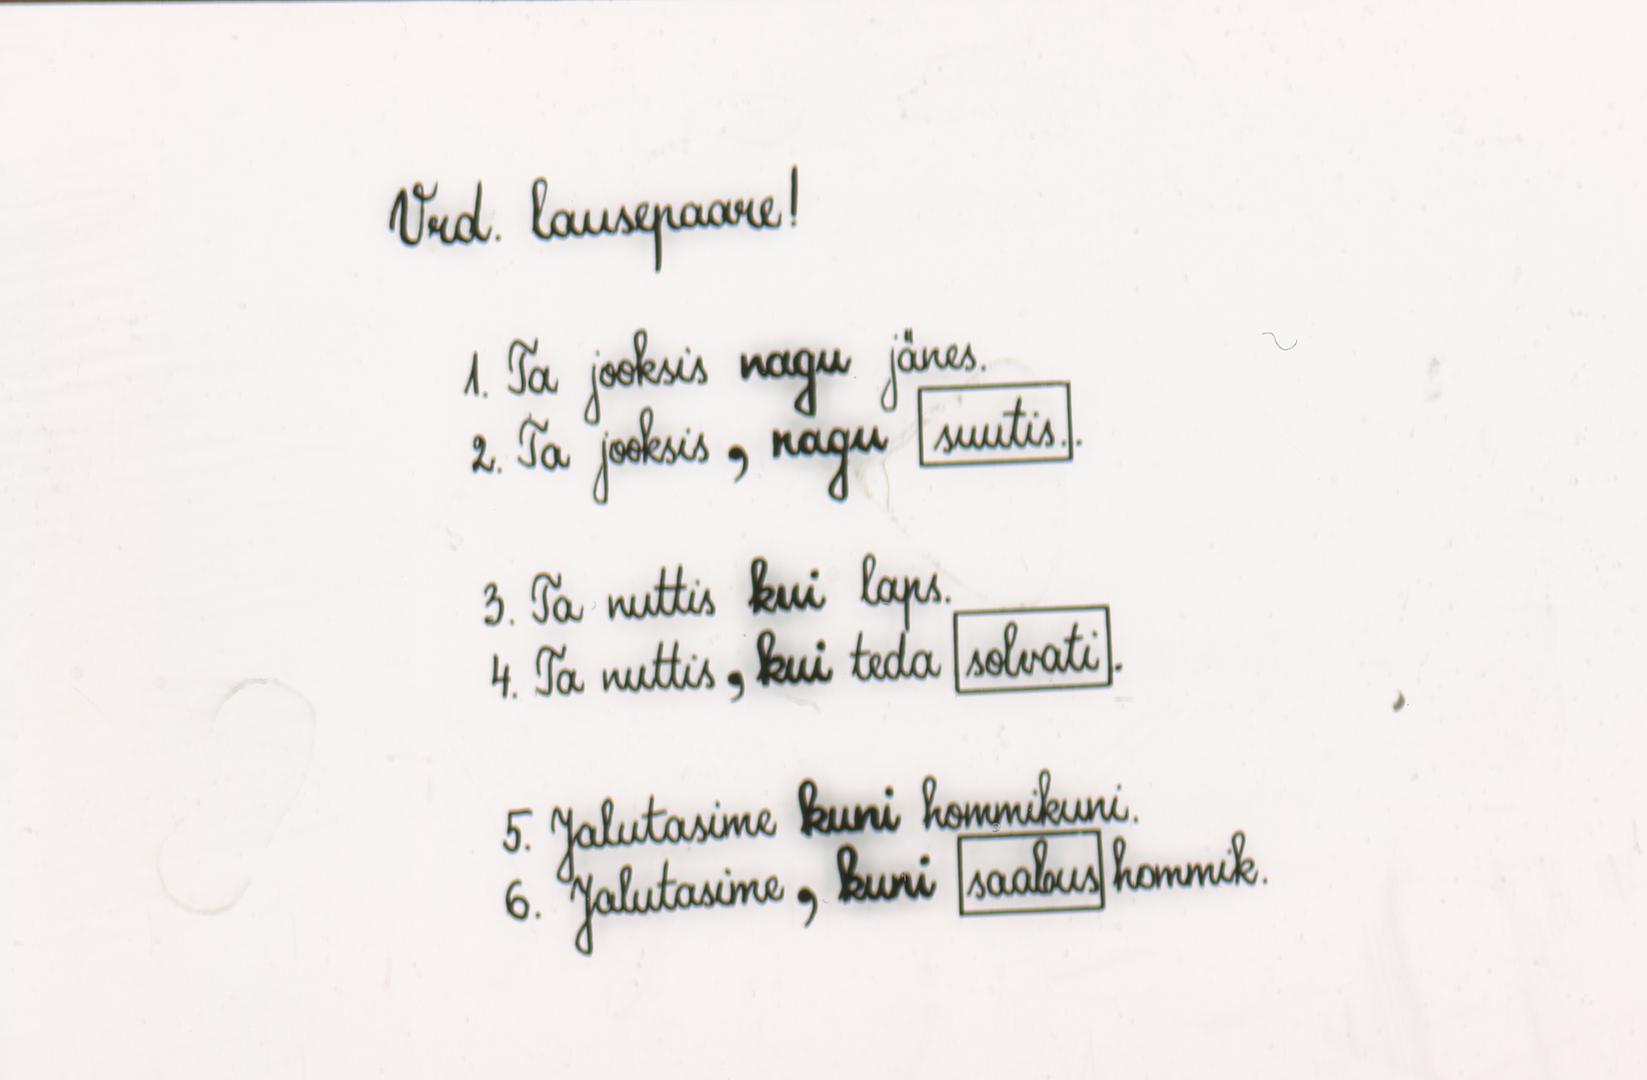 Vrd. lausepaare!
1. Ta jooksis nagu jänes.
2. Ta jooksis, nagu suutis..
3. Ta nuttis kui laps.
4. Ta nuttis, kui teda solvati.
5. Jalutasime kuni hommikuni.
6. Jalutasime, kuni saabus hommik.